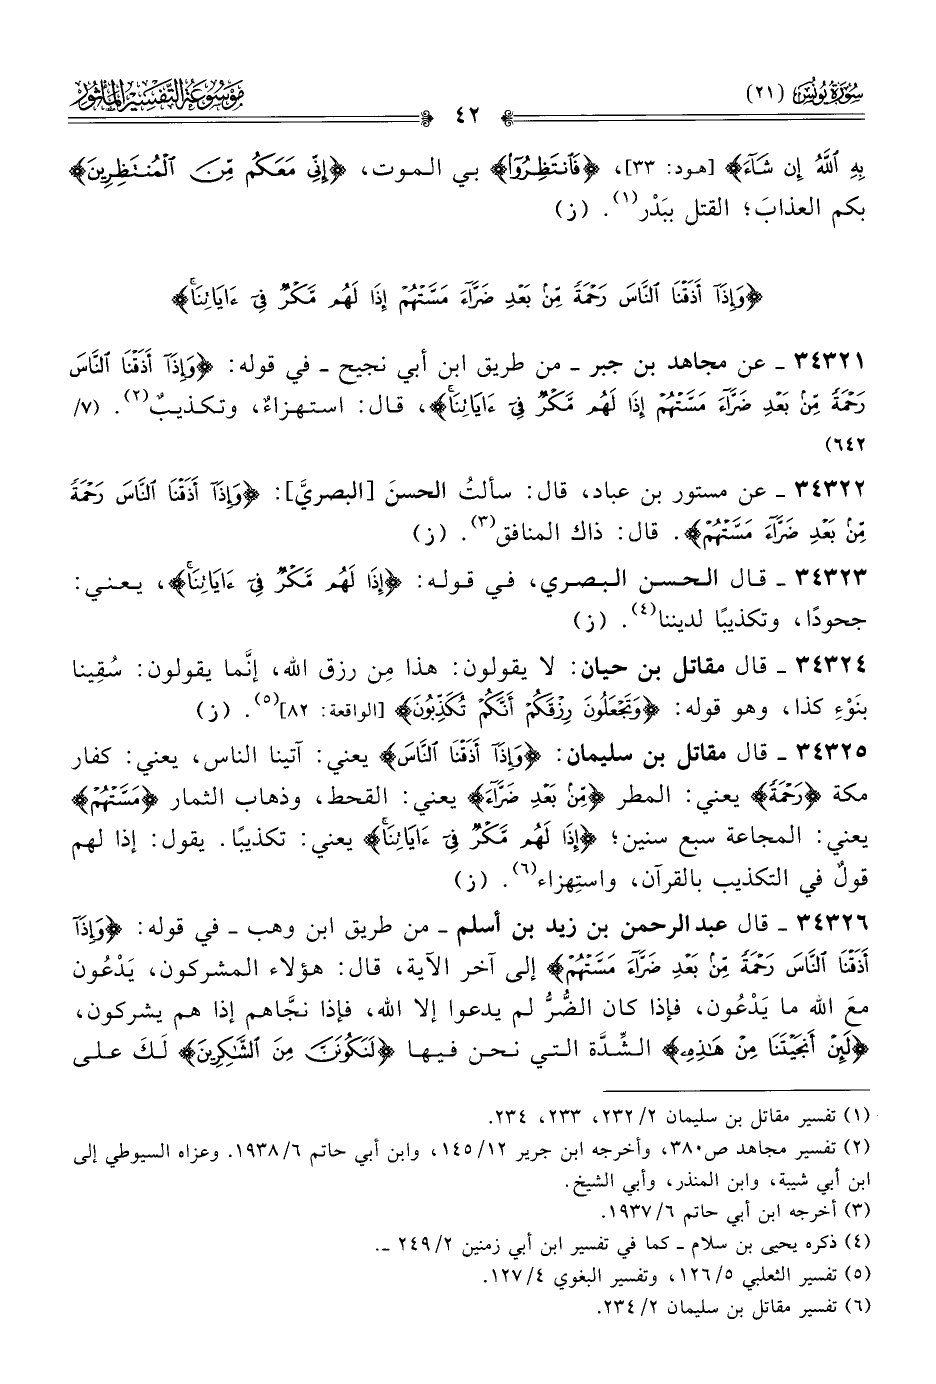 سُورَةُ يُونُسَ (٢١)
٤٢
مَوْسُوعَةُ التَّفْسِيرِ المَأْثُورِ
بِهِ ٱللَّهُ إِن شَآءَ﴾ [هود: ٣٣]، ﴿فَٱنتَظِرُوٓا۟﴾ بي الموت، ﴿إِنِّى مَعَكُم مِّنَ ٱلْمُنتَظِرِينَ﴾
بكم العذابَ؛ القتل ببَدْر(١). (ز)
﴿وَإِذَآ أَذَقْنَا ٱلنَّاسَ رَحْمَةً مِّنۢ بَعْدِ ضَرَّآءَ مَسَّتْهُمْ إِذَا لَهُم مَّكْرٌ فِىٓ ءَايَاتِنَا ۚ﴾
٣٤٣٢١ ـ عن مجاهد بن جبر ـ من طريق ابن أبي نجيح ـ في قوله: ﴿وَإِذَآ أَذَقْنَا ٱلنَّاسَ
رَحْمَةً مِّنۢ بَعْدِ ضَرَّآءَ مَسَّتْهُمْ إِذَا لَهُم مَّكْرٌ فِىٓ ءَايَاتِنَا ۚ﴾، قال: استهزاءٌ، وتكذيبٌ(٢). (٧/
٦٤٢)
٣٤٣٢٢ ـ عن مستور بن عباد، قال: سألتُ الحسنَ [البصريَّ]: ﴿وَإِذَآ أَذَقْنَا ٱلنَّاسَ رَحْمَةً
مِّنۢ بَعْدِ ضَرَّآءَ مَسَّتْهُمْ﴾. قال: ذاك المنافق(٣). (ز)
٣٤٣٢٣ ـ قال الحسن البصري، في قوله: ﴿إِذَا لَهُم مَّكْرٌ فِىٓ ءَايَاتِنَا ۚ﴾، يعني:
جحودًا، وتكذيبًا لديننا(٤). (ز)
٣٤٣٢٤ ـ قال مقاتل بن حيان: لا يقولون: هذا مِن رزق الله، إنَّما يقولون: سُقِينا
بنَوْءِ كذا، وهو قوله: ﴿وَتَجْعَلُونَ رِزْقَكُمْ أَنَّكُمْ تُكَذِّبُونَ﴾ [الواقعة: ٨٢](٥). (ز)
٣٤٣٢٥ ـ قال مقاتل بن سليمان: ﴿وَإِذَآ أَذَقْنَا ٱلنَّاسَ﴾ يعني: آتينا الناس، يعني: كفار
مكة ﴿رَحْمَةً﴾ يعني: المطر ﴿مِّنۢ بَعْدِ ضَرَّآءَ﴾ يعني: القحط، وذهاب الثمار ﴿مَسَّتْهُمْ﴾
يعني: المجاعة سبع سنين؛ ﴿إِذَا لَهُم مَّكْرٌ فِىٓ ءَايَاتِنَا ۚ﴾ يعني: تكذيبًا. يقول: إذا لهم
قولٌ في التكذيب بالقرآن، واستِهزاء(٦). (ز)
٣٤٣٢٦ ـ قال عبدالرحمن بن زيد بن أسلم ـ من طريق ابن وهب ـ في قوله: ﴿وَإِذَآ
أَذَقْنَا ٱلنَّاسَ رَحْمَةً مِّنۢ بَعْدِ ضَرَّآءَ مَسَّتْهُمْ﴾ إلى آخر الآية، قال: هؤلاء المشركون، يَدْعُون
معَ الله ما يَدْعُون، فإذا كان الضُّرُّ لم يدعوا إلا الله، فإذا نجَّاهم إذا هم يشركون،
﴿لَئِنْ أَنجَيْتَنَا مِنْ هَـٰذِهِۦ﴾ الشِّدَّة التي نحن فيها ﴿لَنَكُونَنَّ مِنَ ٱلشَّـٰكِرِينَ﴾ لَكَ على
(١) تفسير مقاتل بن سليمان ٢/ ٢٣٢، ٢٣٣، ٢٣٤.
(٢) تفسير مجاهد ص٣٨٠، وأخرجه ابن جرير ١٢/ ١٤٥، وابن أبي حاتم ٦/ ١٩٣٨. وعزاه السيوطي إلى
ابن أبي شيبة، وابن المنذر، وأبي الشيخ.
(٣) أخرجه ابن أبي حاتم ٦/ ١٩٣٧.
(٤) ذكره يحيى بن سلام ـ كما في تفسير ابن أبي زمنين ٢/ ٢٤٩ ـ.
(٥) تفسير الثعلبي ٥/ ١٢٦، وتفسير البغوي ٤/ ١٢٧.
(٦) تفسير مقاتل بن سليمان ٢/ ٢٣٤.